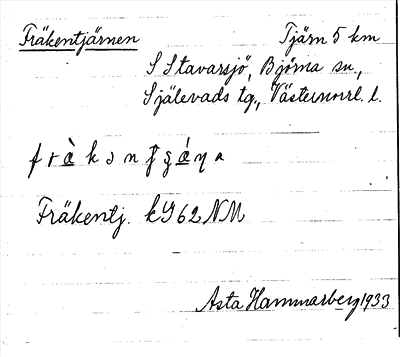 Fräkentjärnen Tjärn 5 km
S Stavarsjö, Björna sn.,
Själevads tg., Västernorrl. l.
Fräkentj. kG 62 NM
Asta Hammarberg 1933